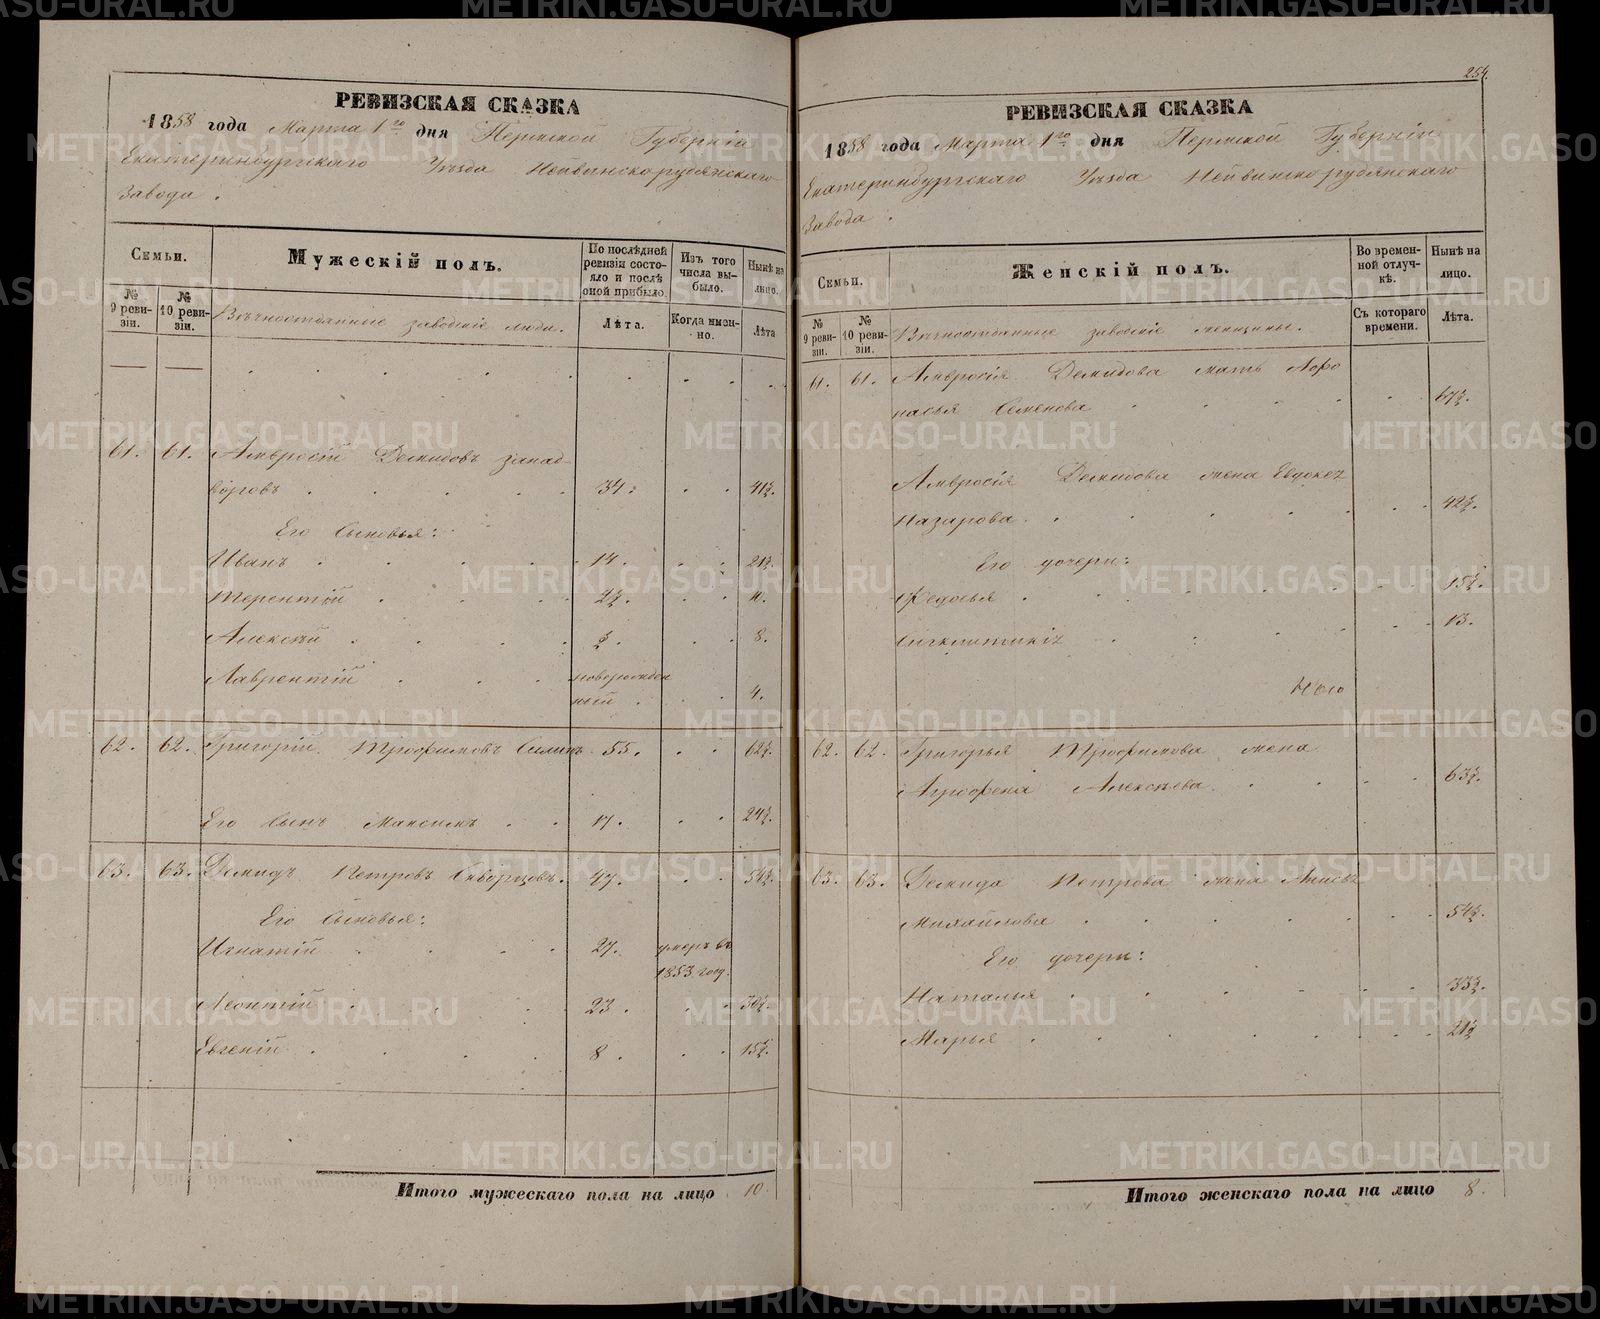 РЕВИЗСКАЯ СКАЗКА
1858 года Марта 1го дня Пермской Губернии
Екатеринбургскаго Уѣзда Нейвинскорудянскаго
Завода.
Семьи.
Мужескій полъ.
По послѣдней ревизіи состояло и послѣ оной прибыло.
Изъ того числа выбыло.
Нынѣ на лицо.
№ 9 ревизіи.
№ 10 ревизіи.
Вѣчноотданные заводскіе люди.
Лѣта.
Когда именно.
Лѣта
61. 61. Амвросій Демидовъ
34. 41½.
Его Сыновья:
Иванъ 14. 21½.
Терентій 2½. 11.
Алексѣй 8.
Лаврентій новорожден
ный 4.
62. 62. Григорій Трофимовъ Силинъ 55. 62½.
Его Сынъ Максимъ 17. 24½.
63. 63. Демидъ Петровъ Скворцовъ. 47. 54½.
Его Сыновья:
Игнатій 27. умеръ въ
1853 году.
Леонтій 23. 30½.
Евгеній 8. 15½.
Итого мужескаго пола на лицо 10.
254.
РЕВИЗСКАЯ СКАЗКА
1858 года Марта 1го дня Пермской Губерніи
Екатеринбургскаго Уѣзда Нейвинскорудянскаго
Завода.
Семьи.
Женскій полъ.
Во временной отлучкѣ.
Нынѣ на лицо.
№ 9 ревизіи.
№ 10 ревизіи.
Вѣчноотданные заводскіе женщины.
Съ котораго времени.
Лѣта.
61. 61. Амвросія Демидова мать Афо
насья Семенова 67½.
Амвросія Демидова жена Евдокея
Назарова. 42½.
Его дочери:
Федосья 15½.
Сигклитикія 13.
62. 62. Григорья Трофимова жена
Агрофена Алексѣева. 63½.
63. 63. Демида Петрова жена Анисья
Михайлова 54½.
Его дочери:
Наталья 33½.
Марья 21½
Итого женскаго пола на лицо 8.
METRIKI.GASO-URAL.RU